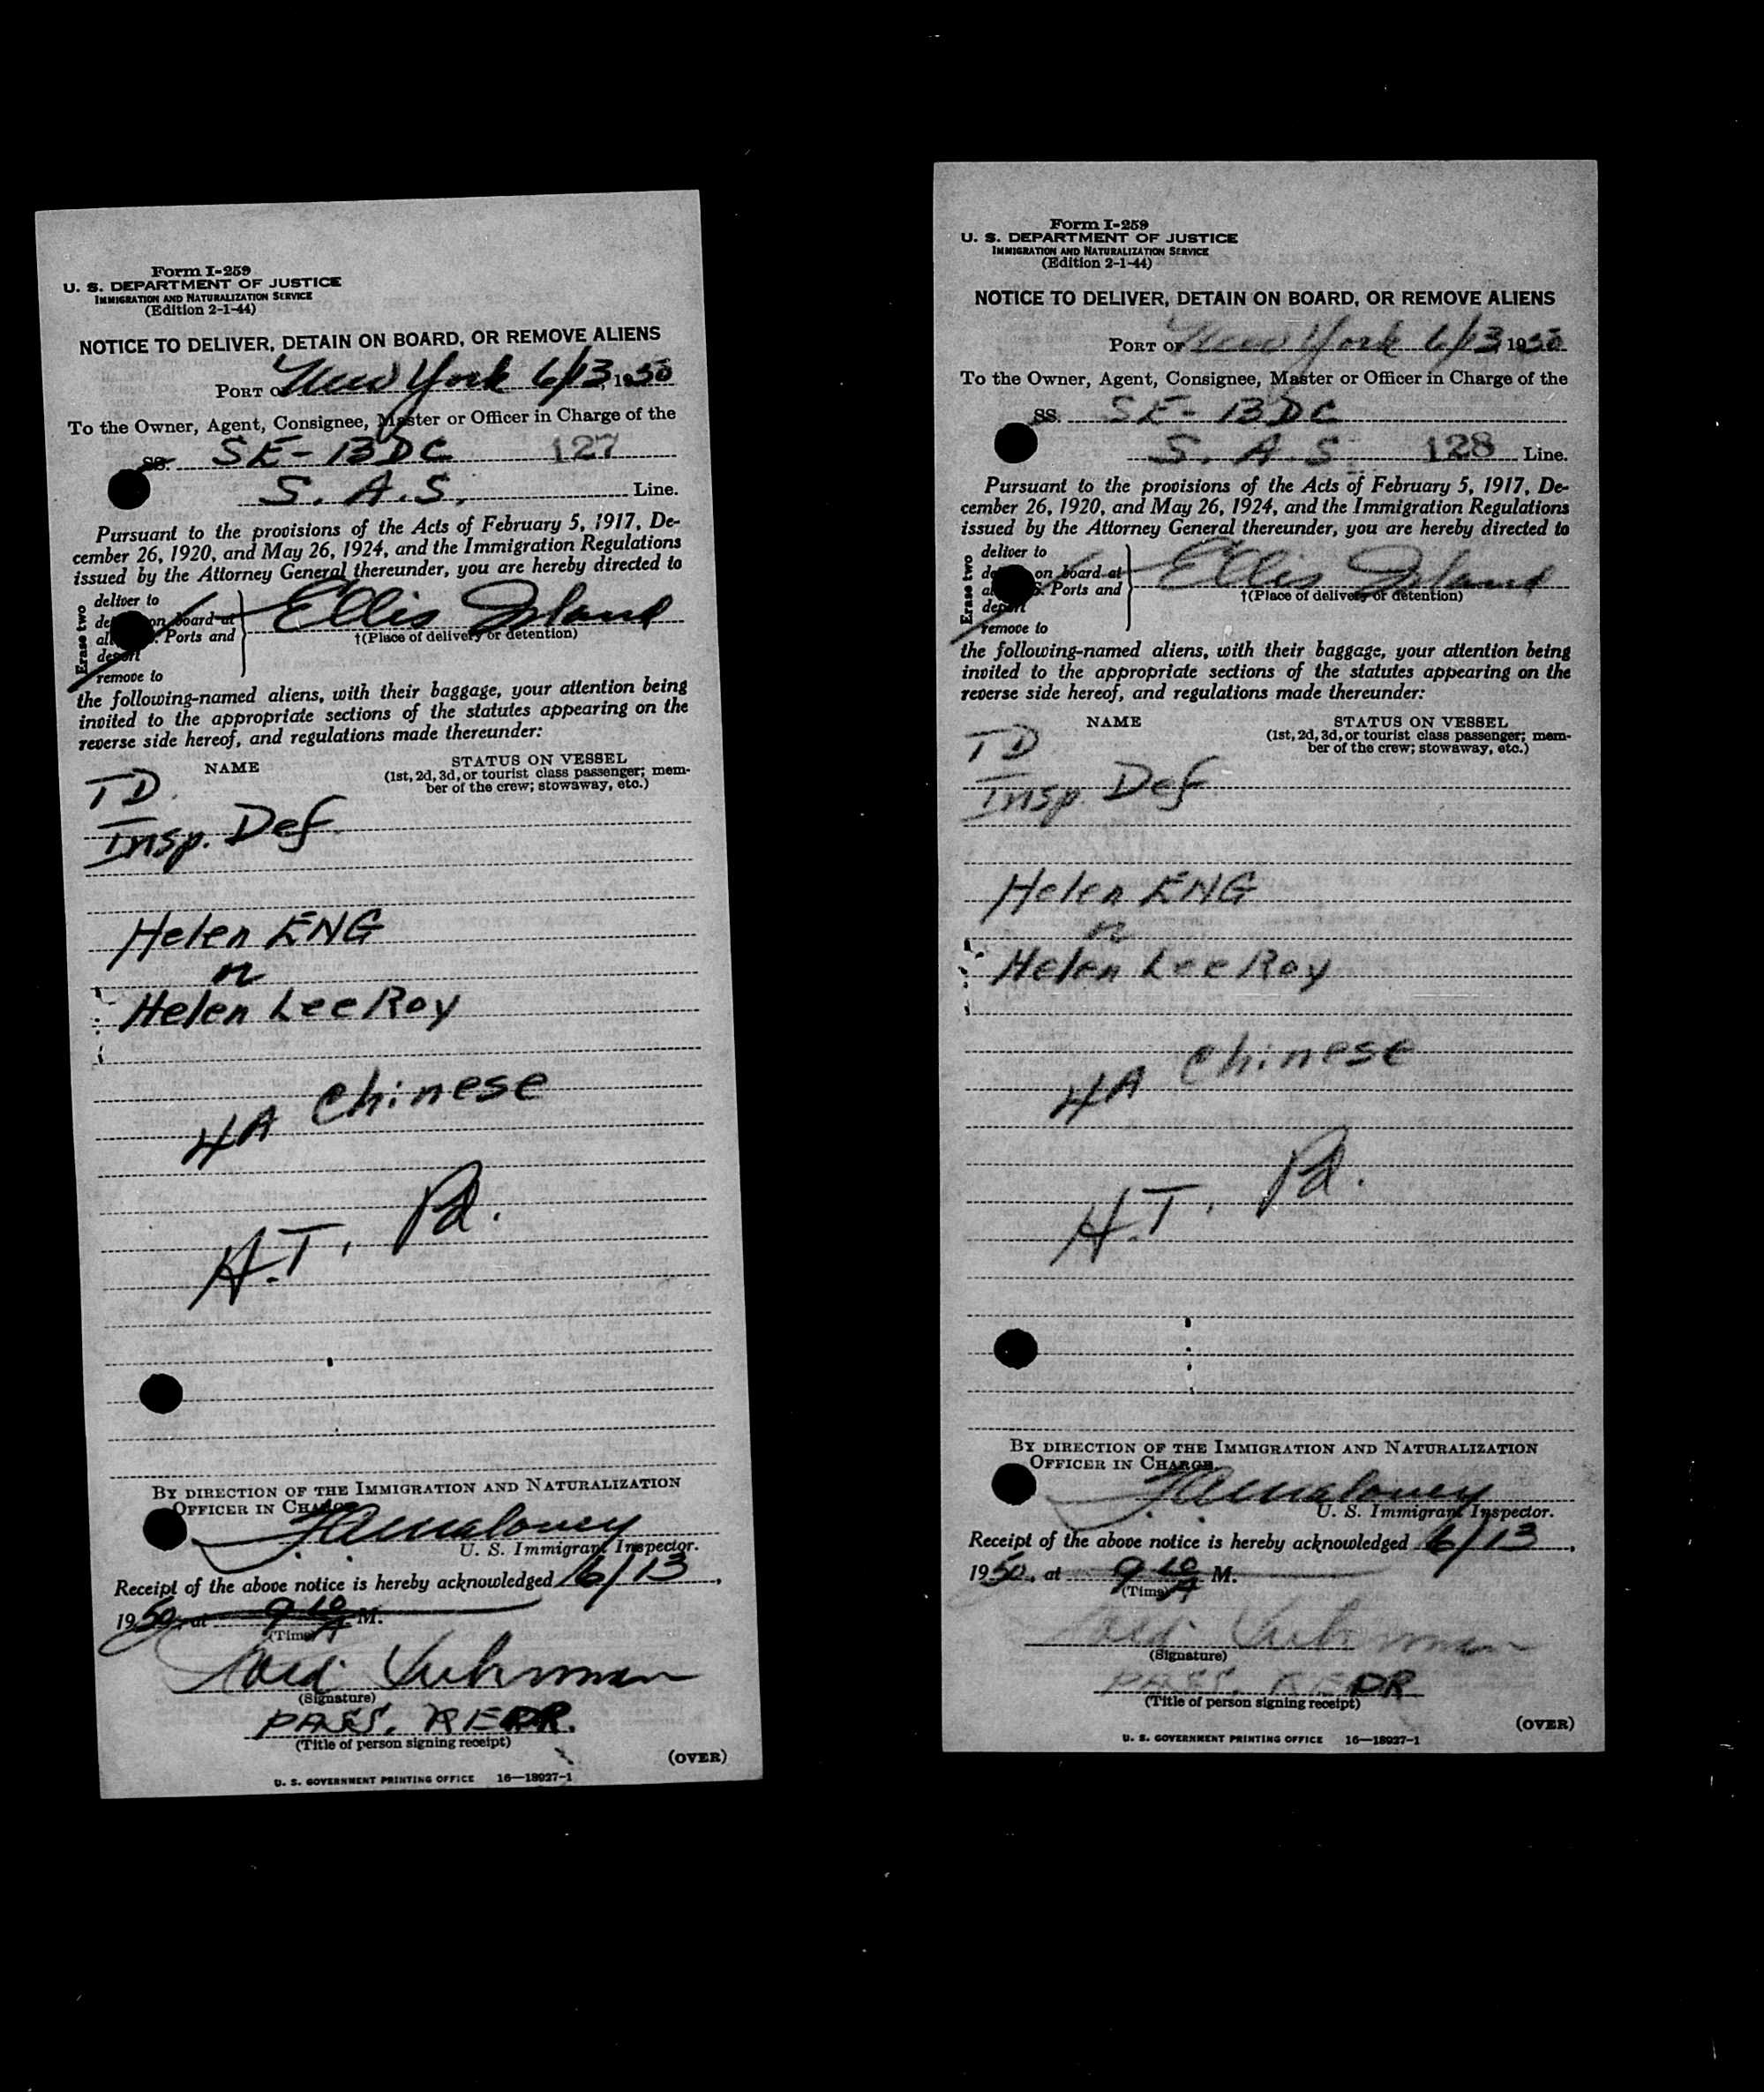 Form I-259
U. S. DEPARTMENT OF JUSTICE
IMMIGRATION AND NATURALIZATION SERVICE
(Edition 2-1-44)
NOTICE TO DELIVER, DETAIN ON BOARD, OR REMOVE ALIENS
PORT OF New York 6/13, 1950
To the Owner, Agent, Consignee, Master or Officer in Charge of the
SS. SE-BDC 127
S. A. S. Line.
Pursuant to the provisions of the Acts of February 5, 1917, De-
cember 26, 1920, and May 26, 1924, and the Immigration Regulations
issued by the Attorney General thereunder, you are hereby directed to
Erase two
deliver to
on board at
Ports and
deport
remove to
Ellis Island
†(Place of delivery or detention)
the following-named aliens, with their baggage, your attention being
invited to the appropriate sections of the statutes appearing on the
reverse side hereof, and regulations made thereunder:
NAME
STATUS ON VESSEL
(1st, 2d, 3d, or tourist class passenger; mem-
ber of the crew; stowaway, etc.)
TD
Insp. Def
Helen ENG
or
Helen Lee Roy
4A Chinese
H.T. Pd.
BY DIRECTION OF THE IMMIGRATION AND NATURALIZATION
OFFICER IN CHARGE
U. S. Immigrant Inspector.
Receipt of the above notice is hereby acknowledged 6/13,
1950, at 9 10 A M.
(Time)
(Signature)
PASS. REPR.
(Title of person signing receipt)
(OVER)
U. S. GOVERNMENT PRINTING OFFICE 16—18027-1
Form I-259
U. S. DEPARTMENT OF JUSTICE
IMMIGRATION AND NATURALIZATION SERVICE
(Edition 2-1-44)
NOTICE TO DELIVER, DETAIN ON BOARD, OR REMOVE ALIENS
PORT OF New York 6/13, 1950
To the Owner, Agent, Consignee, Master or Officer in Charge of the
SS. SE-BDC
S. A. S. 128 Line.
Pursuant to the provisions of the Acts of February 5, 1917, De-
cember 26, 1920, and May 26, 1924, and the Immigration Regulations
issued by the Attorney General thereunder, you are hereby directed to
Erase two
deliver to
on board at
Ports and
deport
remove to
Ellis Island
†(Place of delivery or detention)
the following-named aliens, with their baggage, your attention being
invited to the appropriate sections of the statutes appearing on the
reverse side hereof, and regulations made thereunder:
NAME
STATUS ON VESSEL
(1st, 2d, 3d, or tourist class passenger; mem-
ber of the crew; stowaway, etc.)
TD
Insp. Def
Helen ENG
or
Helen Lee Roy
4A Chinese
H.T. Pd.
BY DIRECTION OF THE IMMIGRATION AND NATURALIZATION
OFFICER IN CHARGE
U. S. Immigrant Inspector.
Receipt of the above notice is hereby acknowledged 6/13,
1950, at 9 10 A M.
(Time)
(Signature)
PASS. REPR
(Title of person signing receipt)
(OVER)
U. S. GOVERNMENT PRINTING OFFICE 16—18027-1